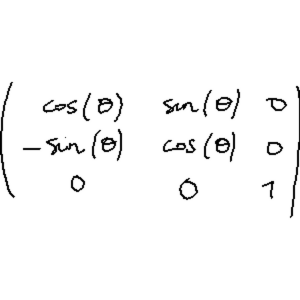 cos(θ) sin(θ) 0
-sin(θ) cos(θ) 0
0 0 1